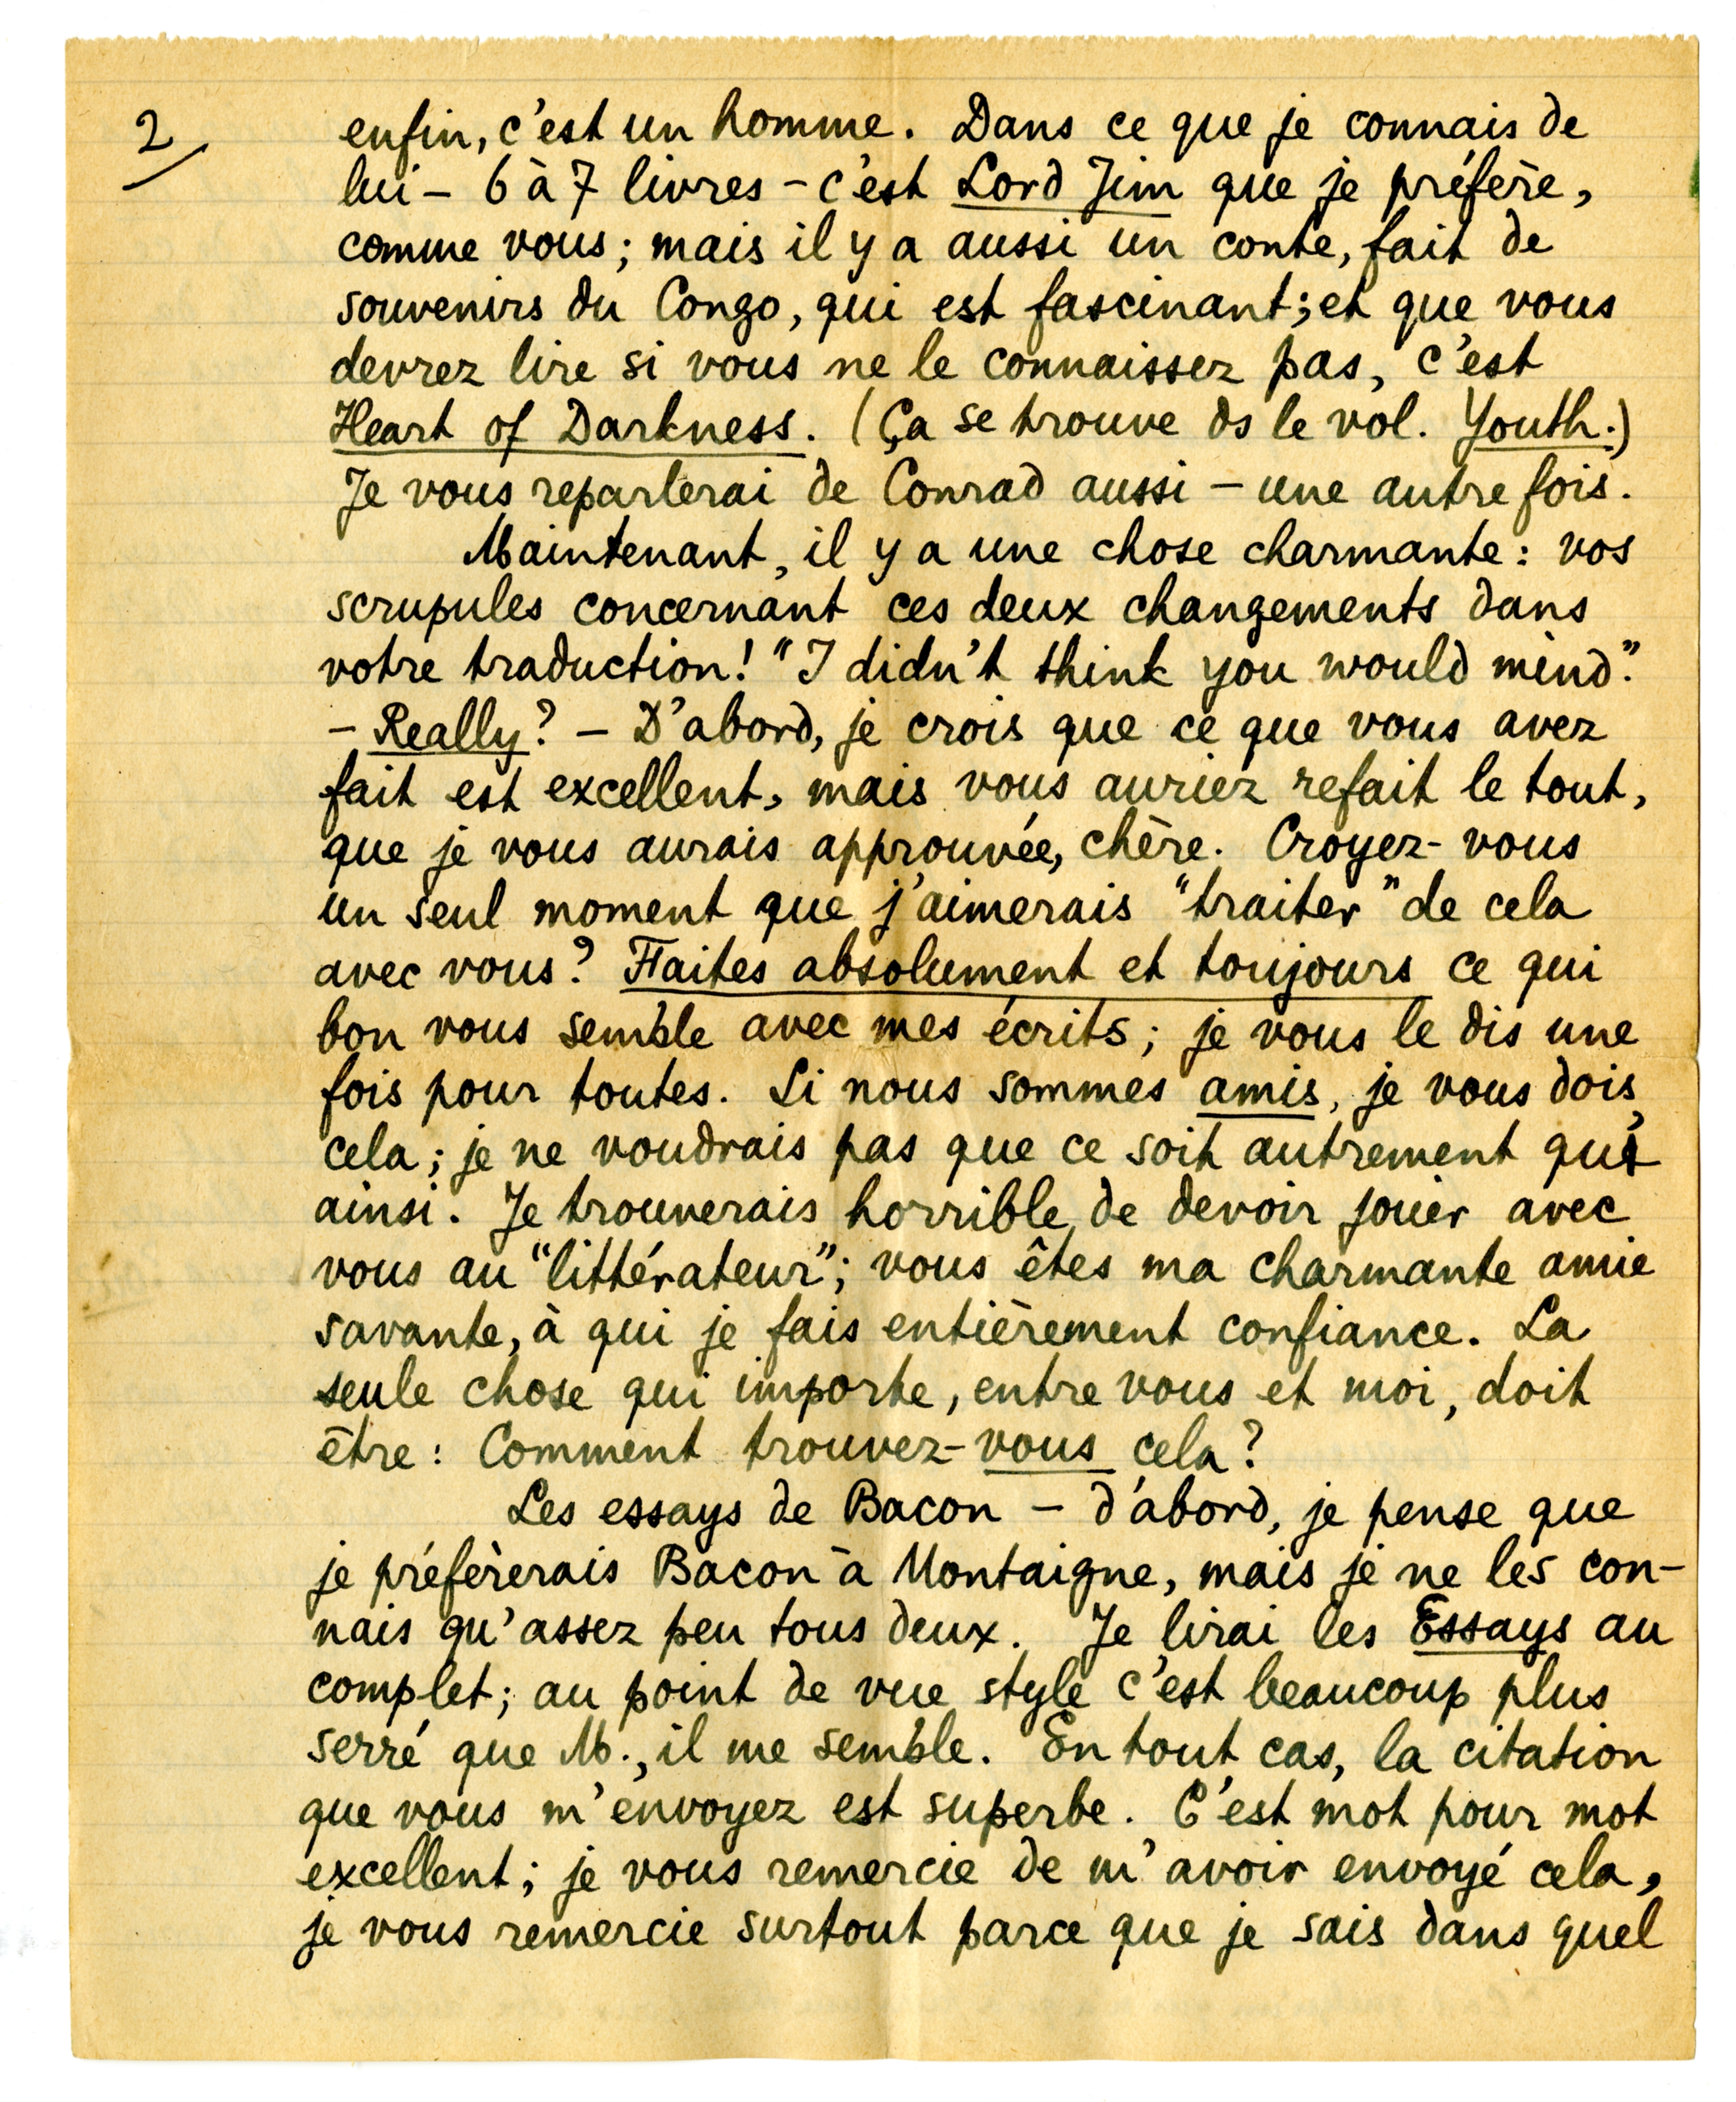 2/
enfin, c'est un homme. Dans ce que je connais de
lui – 6 à 7 livres – c'est Lord Jim que je préfère,
comme vous; mais il y a aussi un conte, fait de
souvenirs du Congo, qui est fascinant; et que vous
devrez lire si vous ne le connaissez pas, c'est
Heart of Darkness. (Ça se trouve ds le vol. Youth.)
Je vous reparlerai de Conrad aussi – une autre fois.
Maintenant, il y a une chose charmante: vos
scrupules concernant ces deux changements dans
votre traduction! "I didn't think you would mind".
– Really? – D'abord, je crois que ce que vous avez
fait est excellent, mais vous auriez refait le tout,
que je vous aurais approuvée, chère. Croyez-vous
un seul moment que j'aimerais "traiter" de cela
avec vous? Faites absolument et toujours ce qui
bon vous semble avec mes écrits; je vous le dis une
fois pour toutes. Si nous sommes amis, je vous dois
cela; je ne voudrais pas que ce soit autrement qu'
ainsi. Je trouverais horrible de devoir jouer avec
vous au "littérateur"; vous êtes ma charmante amie
savante, à qui je fais entièrement confiance. La
seule chose qui importe, entre vous et moi, doit
être: Comment trouvez-vous cela?
Les essays de Bacon – d'abord, je pense que
je préfèrerais Bacon à Montaigne, mais je ne les con-
nais qu'assez peu tous deux. Je lirai les Essays au
complet; au point de vue style c'est beaucoup plus
serré que M., il me semble. En tout cas, la citation
que vous m'envoyez est superbe. C'est mot pour mot
excellent; je vous remercie de m'avoir envoyé cela,
je vous remercie surtout parce que je sais dans quel